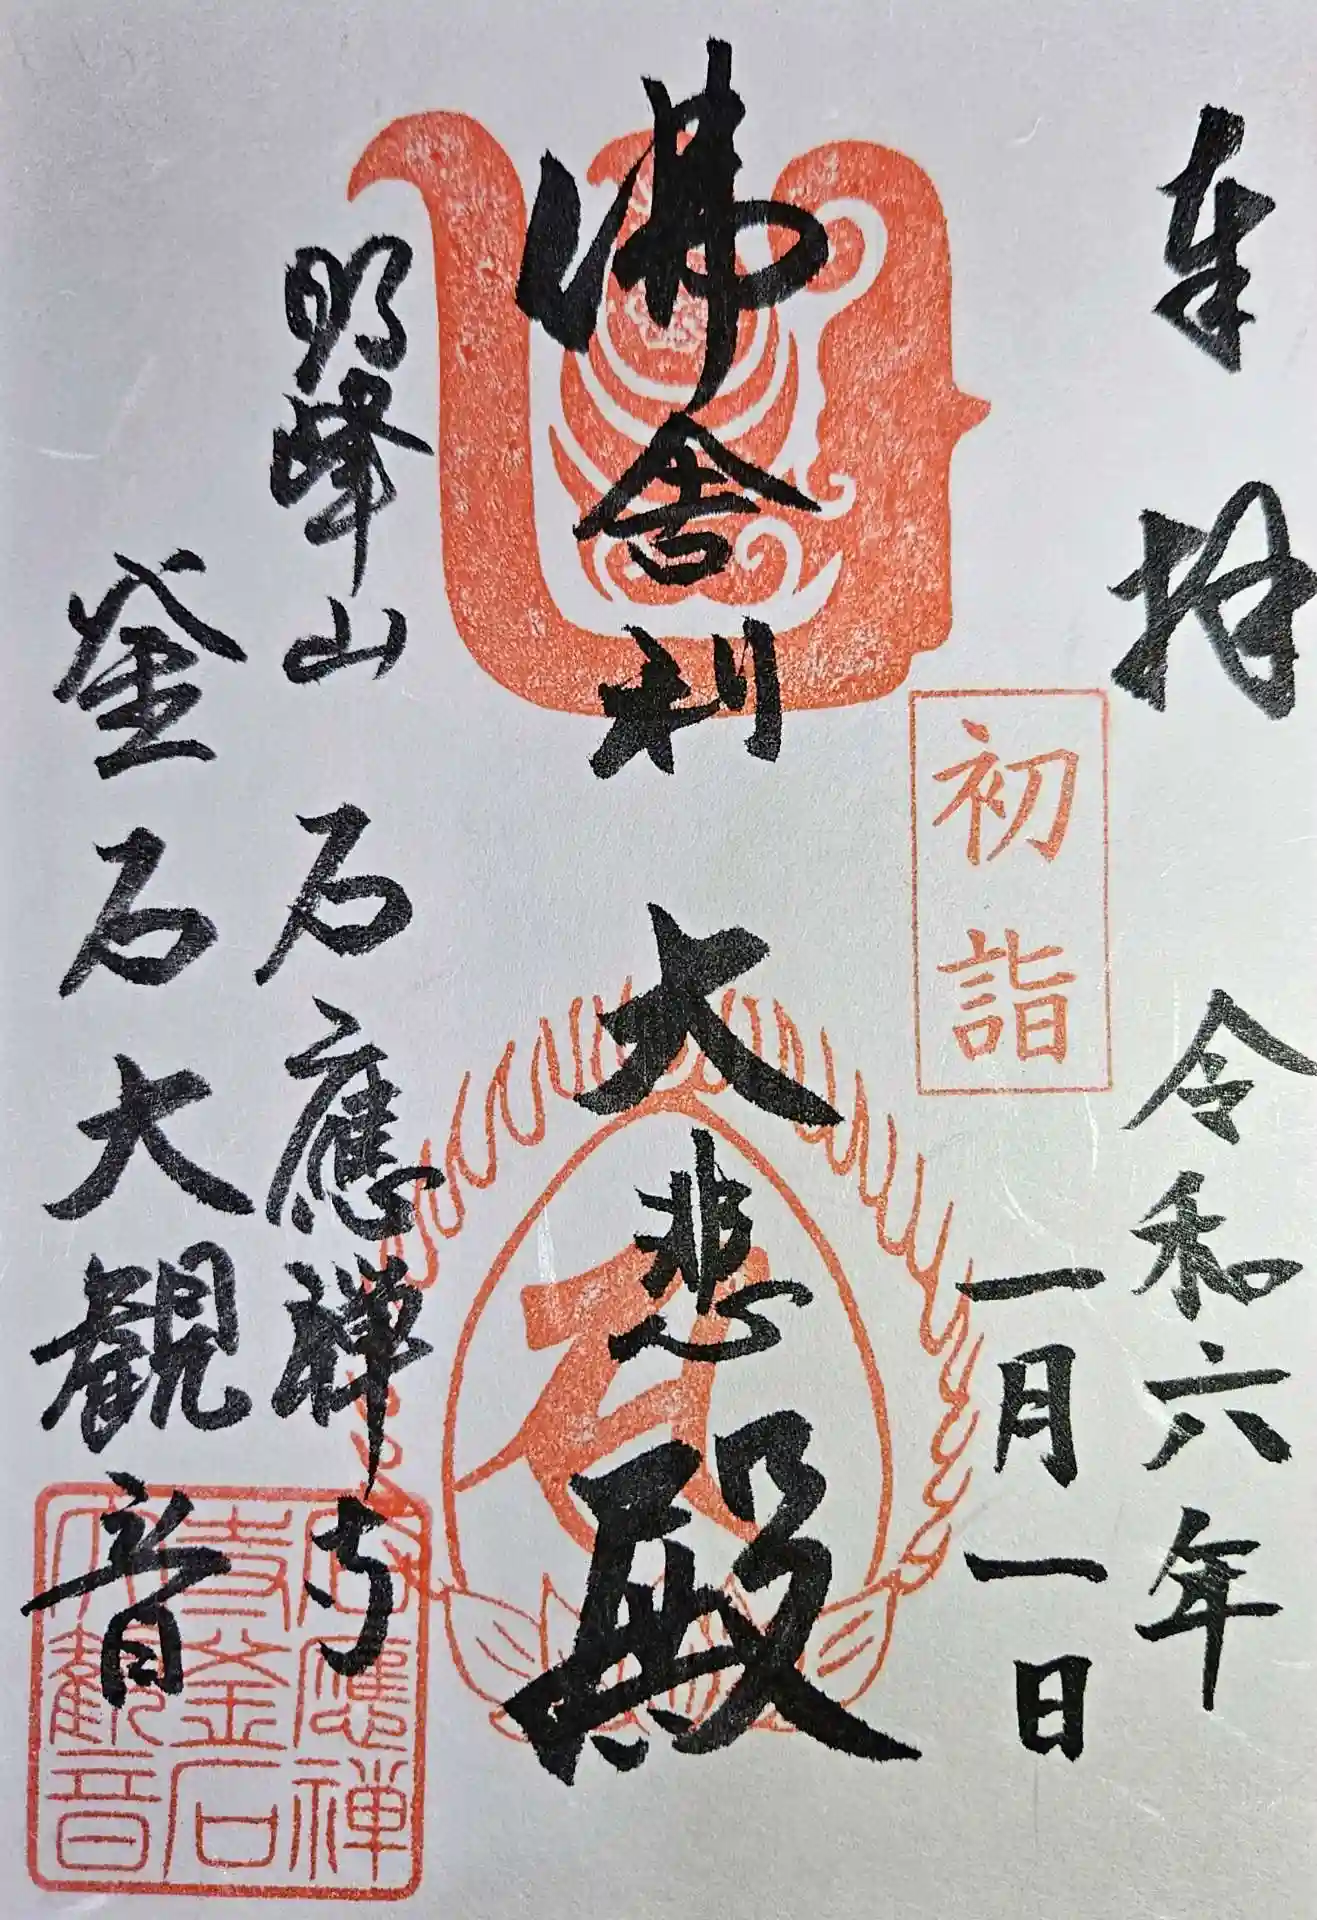 奉拝
令和六年
一月一日
初詣
佛舎利
大悲殿
明峰山 石應禅寺
釜石大観音
石應禅
寺釜石
大観音